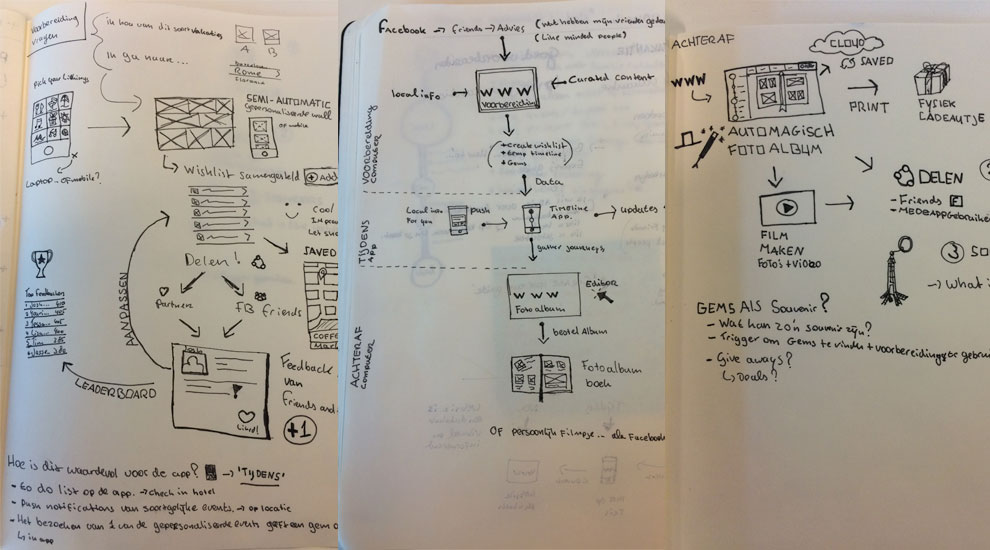 Voorbereiding
vragen
in hou van dit soort vakanties
A B
In ga naar...
Barcelona
Rome
Florence
Pick your likings
Laptop... of mobile?
SEMI-AUTOMATIC
gepersonaliseerde wall
op mobile
Wishlist samengesteld
+ Add
Cool
SAVED
Delen!
Partner
FB friends
COFFE
AANPASSEN
Top Feedbacken
LEADERBOARD
Liked!
Feedback
van
Friends and
+1
Hoe is dit waardevol voor de app? → 'TIJDENS'
- Go do list op de app. → check in hotel
- Push notifications van soortgelijke events. → op locatie
- Het bezoeken van 1 van de gepersonaliseerde events geeft een gem
↳ in app
Facebook → Friends → Advies (Wat hebben mijn vrienden gedaan
(Like minded people)
local info → www ← Curated content
voorbereiding
VOORBEREIDING
COMPUTER
+ Create wishlist
+ Gems
Data
TIJDENS
APP
Local info
For you
push
Timeline
App.
→ updates
gather journeys
www
Fotoalbum
Editor
ACHTERAF
COMPUTER
bestel Album
Fotoalbum
boek
OF persoonlijk Filmpje... ala Facebook
ACHTERAF
WWW
CLOUD
SAVED
PRINT
FYSIEK
CADEAUTJE
AUTOMAGISCH
FOTO ALBUM
DELEN
- Friends F
- MEDEAPPGEBRUIKE
FILM
MAKEN
FOTO'S + VIDEO
3 SO
→ What i
GEMS ALS SOUVENIR?
- Wat kan zo'n souvenir zijn?
- Trigger om Gems te vinden + voorbereidingstor gebru
- Give aways?
↳ Deals?